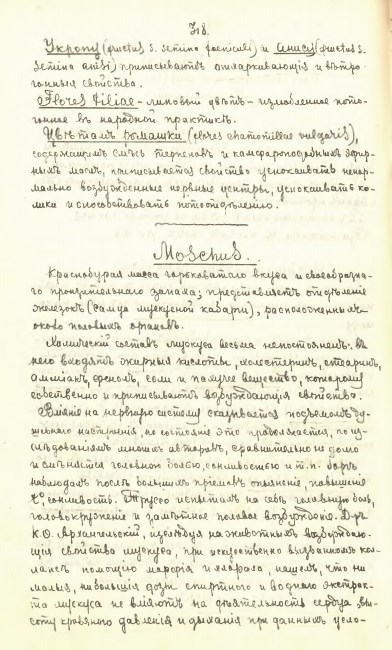 318.
Укропу (fructus s. semina foeniculi) и анису (fructus s.
semina anisi) приписываютъ отхаркивающія и вѣтро-
гонныя свойства.
Flores tiliae – липовый цвѣтъ – излюбленное пото-
гонное въ народной практикѣ.
Цвѣтамъ ромашки (flores chamomillae vulgaris),
содержащимъ смѣсь терпеновъ и камфароподобныхъ эфир-
ныхъ маслъ, приписывается свойство успокаивать ненор-
мально возбужденные нервные центры, успокаивать ко-
лики и способствовать потоотдѣленію.
Moschus.
Краснобурая масса горьковатаго вкуса и своеобразна-
го пронзительнаго запаха; представляетъ отдѣленіе
железокъ (самца мускусной кабарги), расположенныхъ
около половыхъ органовъ.
Химическій составъ мускуса весьма непостояненъ: въ
него входятъ жирныя кислоты, холестеринъ, стеаринъ,
амміакъ, фенолъ, соли и пахучее вещество, которому
собственно и приписываютъ возбуждающія свойства.
Вліяніе на нервную систему сказывается подъемомъ ду-
шевнаго настроенія, но состояніе это продолжается, по из-
слѣдованіямъ многихъ авторовъ, сравнительно не долго
и смѣняется головною болью, сонливостью и т. п.
наблюдалъ послѣ большихъ пріемовъ опьяненіе, повышеніе
tº, сонливость. Труссо испыталъ на себѣ головную боль,
головокруженіе и замѣтное половое возбужденіе. Д-ръ
К.О. Архангельскій, изслѣдуя на животныхъ возбуждаю-
щія свойства мускуса, при искусственно вызванномъ кол-
лапсѣ помощію морфія и хлорала, нашелъ, что ни
малыя, ни большія дозы спиртного и водного экстрак-
та мускуса не вліяютъ на дѣятельность сердца, вы-
соту кровяного давленія и дыханія при данныхъ усло-